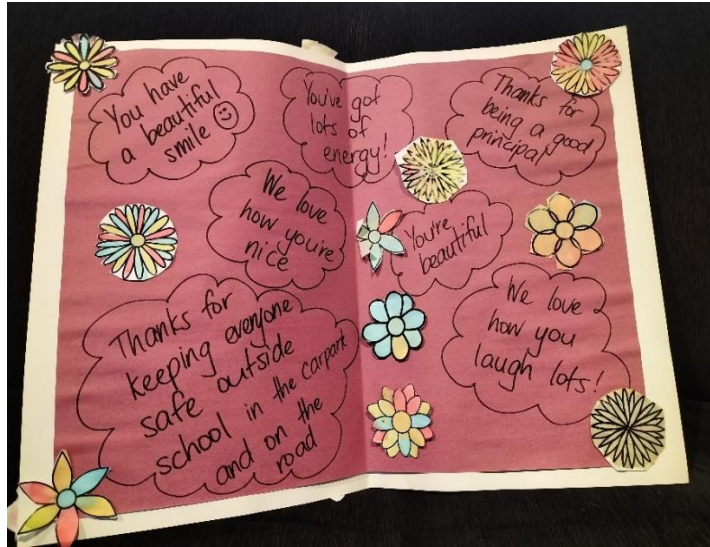 You have
a beautiful
smile ☺
You've got
lots of
energy!
Thanks for
being a good
principal
We love
how you're
nice
You're
beautiful
Thanks for
keeping everyone
safe outside
school in the carpark
and on the
road
We love
how you
laugh lots!